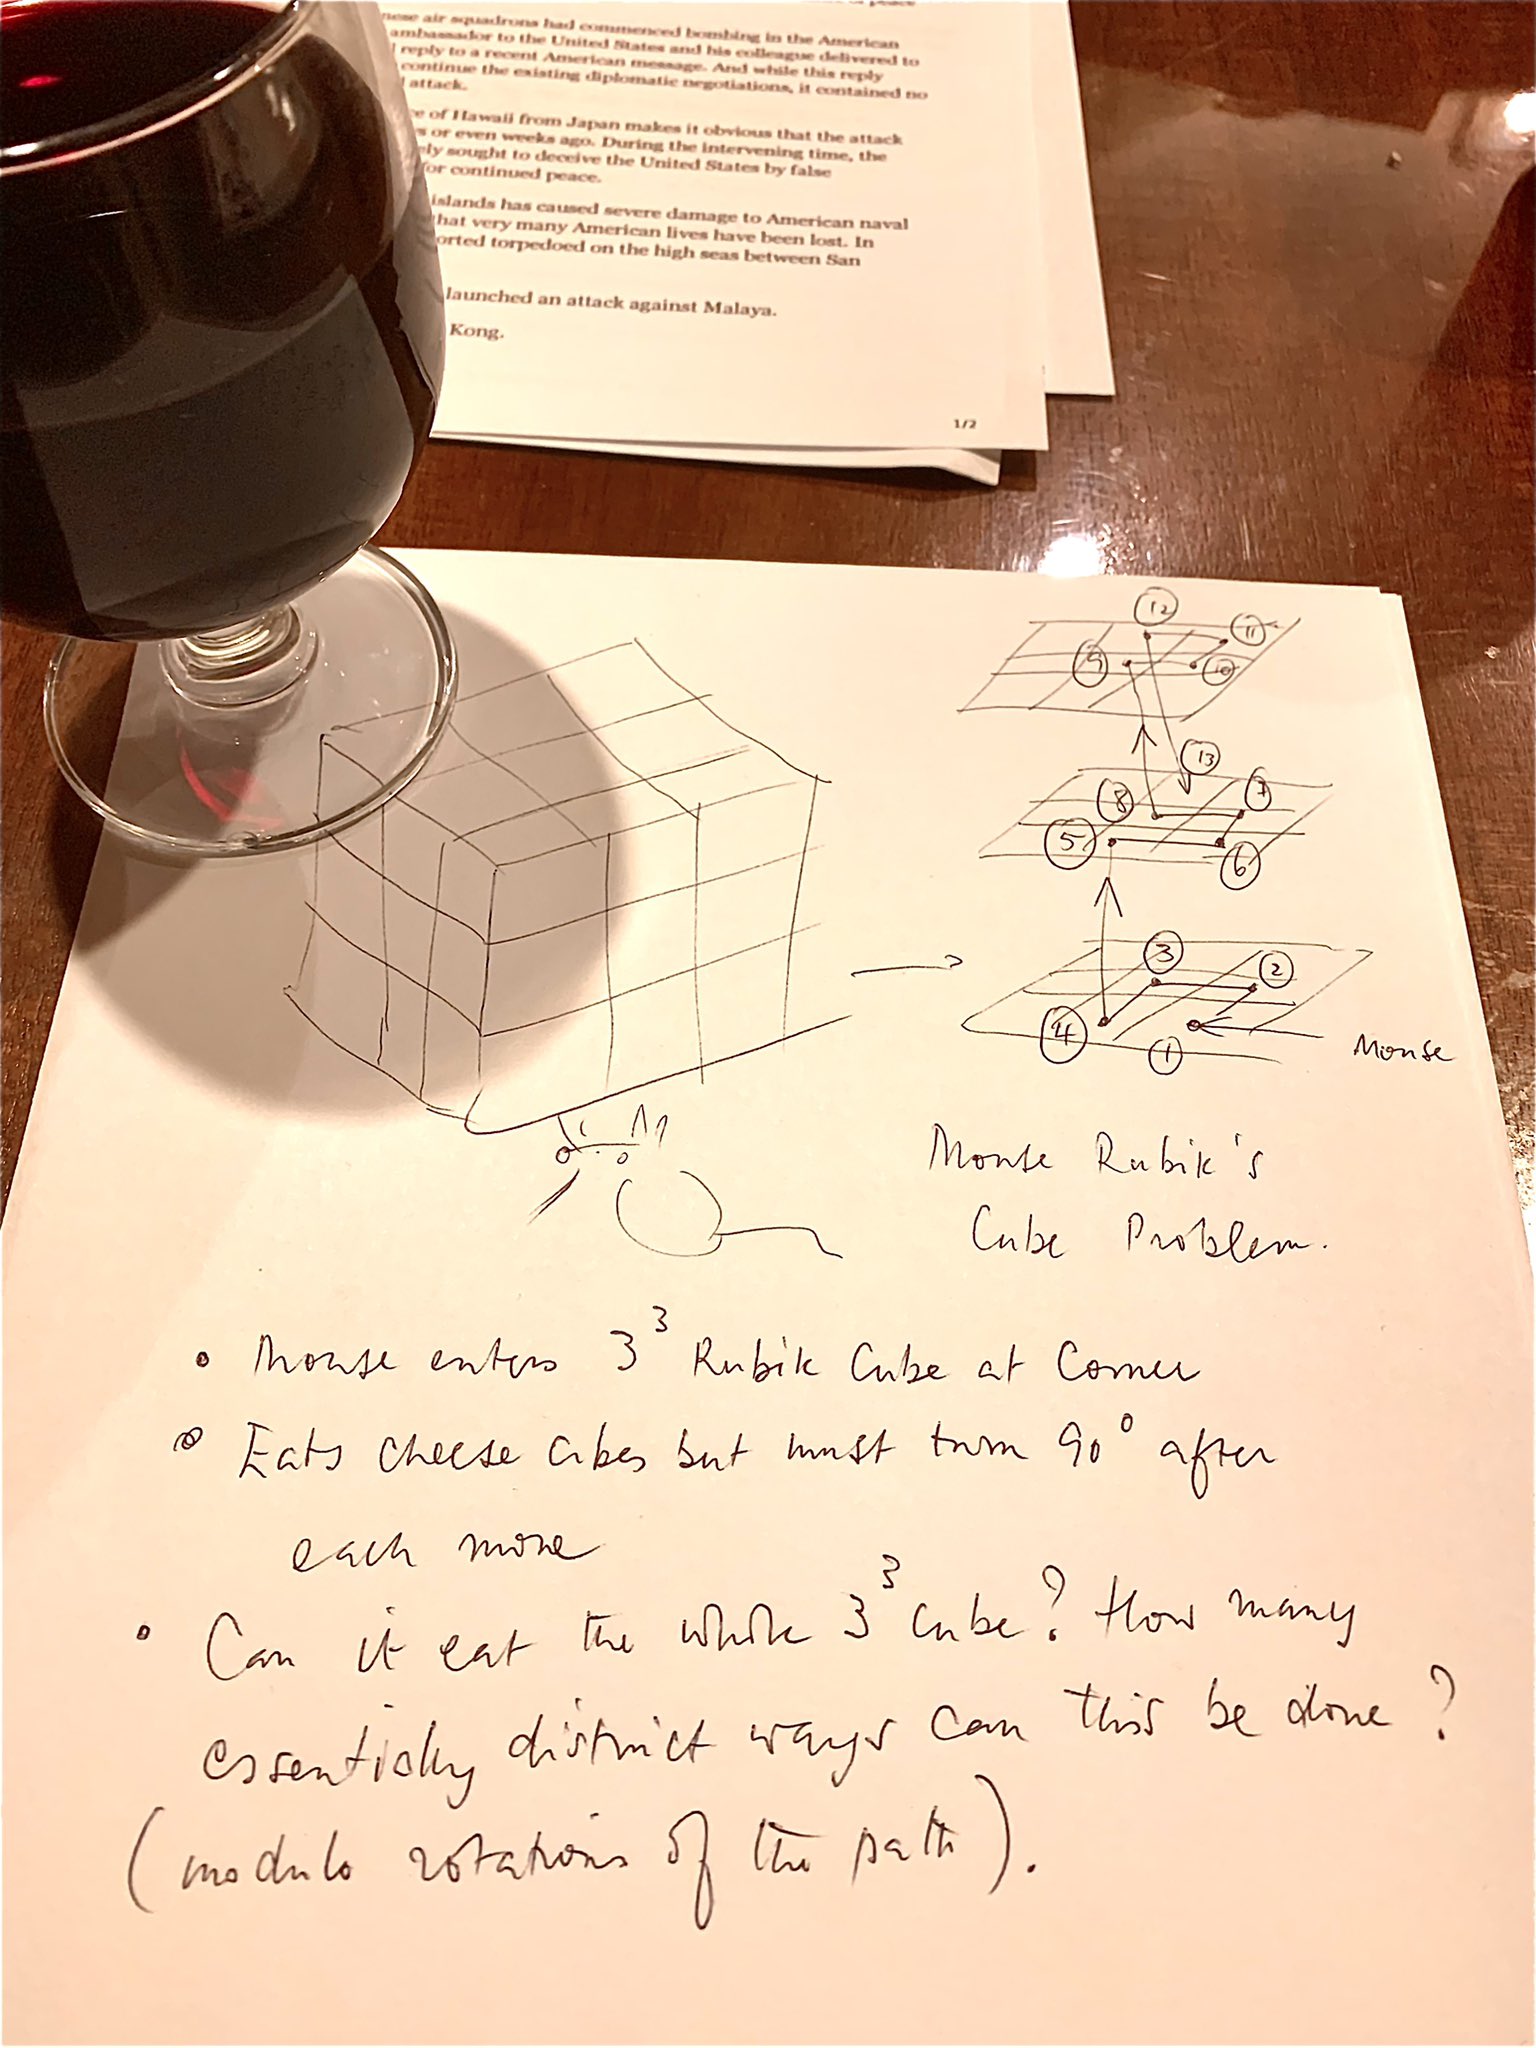 nese air squadrons had commenced bombing in the American
ambassador to the United States and his colleague delivered to
reply to a recent American message. And while this reply
continue the existing diplomatic negotiations, it contained no
attack.
e of Hawaii from Japan makes it obvious that the attack
s or even weeks ago. During the intervening time, the
ely sought to deceive the United States by false
for continued peace.
islands has caused severe damage to American naval
hat very many American lives have been lost. In
orted torpedoed on the high seas between San
launched an attack against Malaya.
Kong.
1/2
12
11
9
10
13
8
7
5
6
3
2
4
1
Mouse
Mouse Rubik's
Cube Problem.
• Mouse enters 3³ Rubik Cube at Corner
• Eats cheese cubes but must turn 90° after
each move
• Can it eat the whole 3³ cube? How many
essentially distinct ways can this be done?
(modulo rotations of the path).